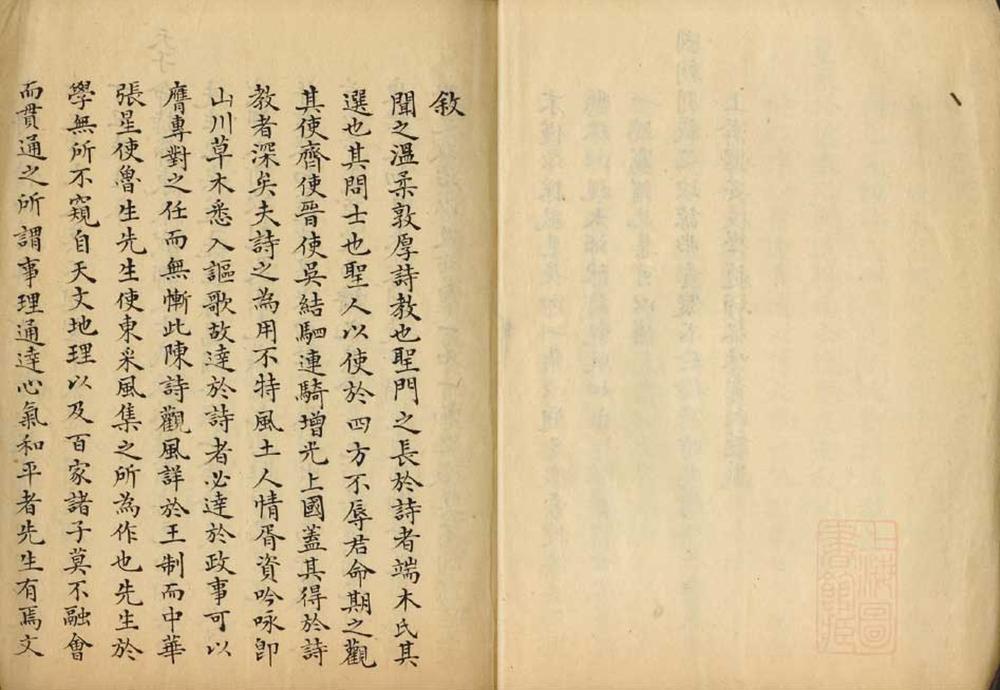 上海圖
書館藏
敘
聞之溫柔敦厚詩教也聖門之長於詩者端木氏其
選也其問士也聖人以使於四方不辱君命期之觀
其使齊使晉使吳結駟連騎增光上國蓋其得於詩
教者深矣夫詩之為用不特風土人情胥資吟咏卽
山川草木悉入謳歌故達於詩者必達於政事可以
膺專對之任而無慚此陳詩觀風詳於王制而中華
張星使魯生先生使東采風集之所為作也先生於
學無所不窺自天文地理以及百家諸子莫不融會
而貫通之所謂事理通達心氣和平者先生有焉文